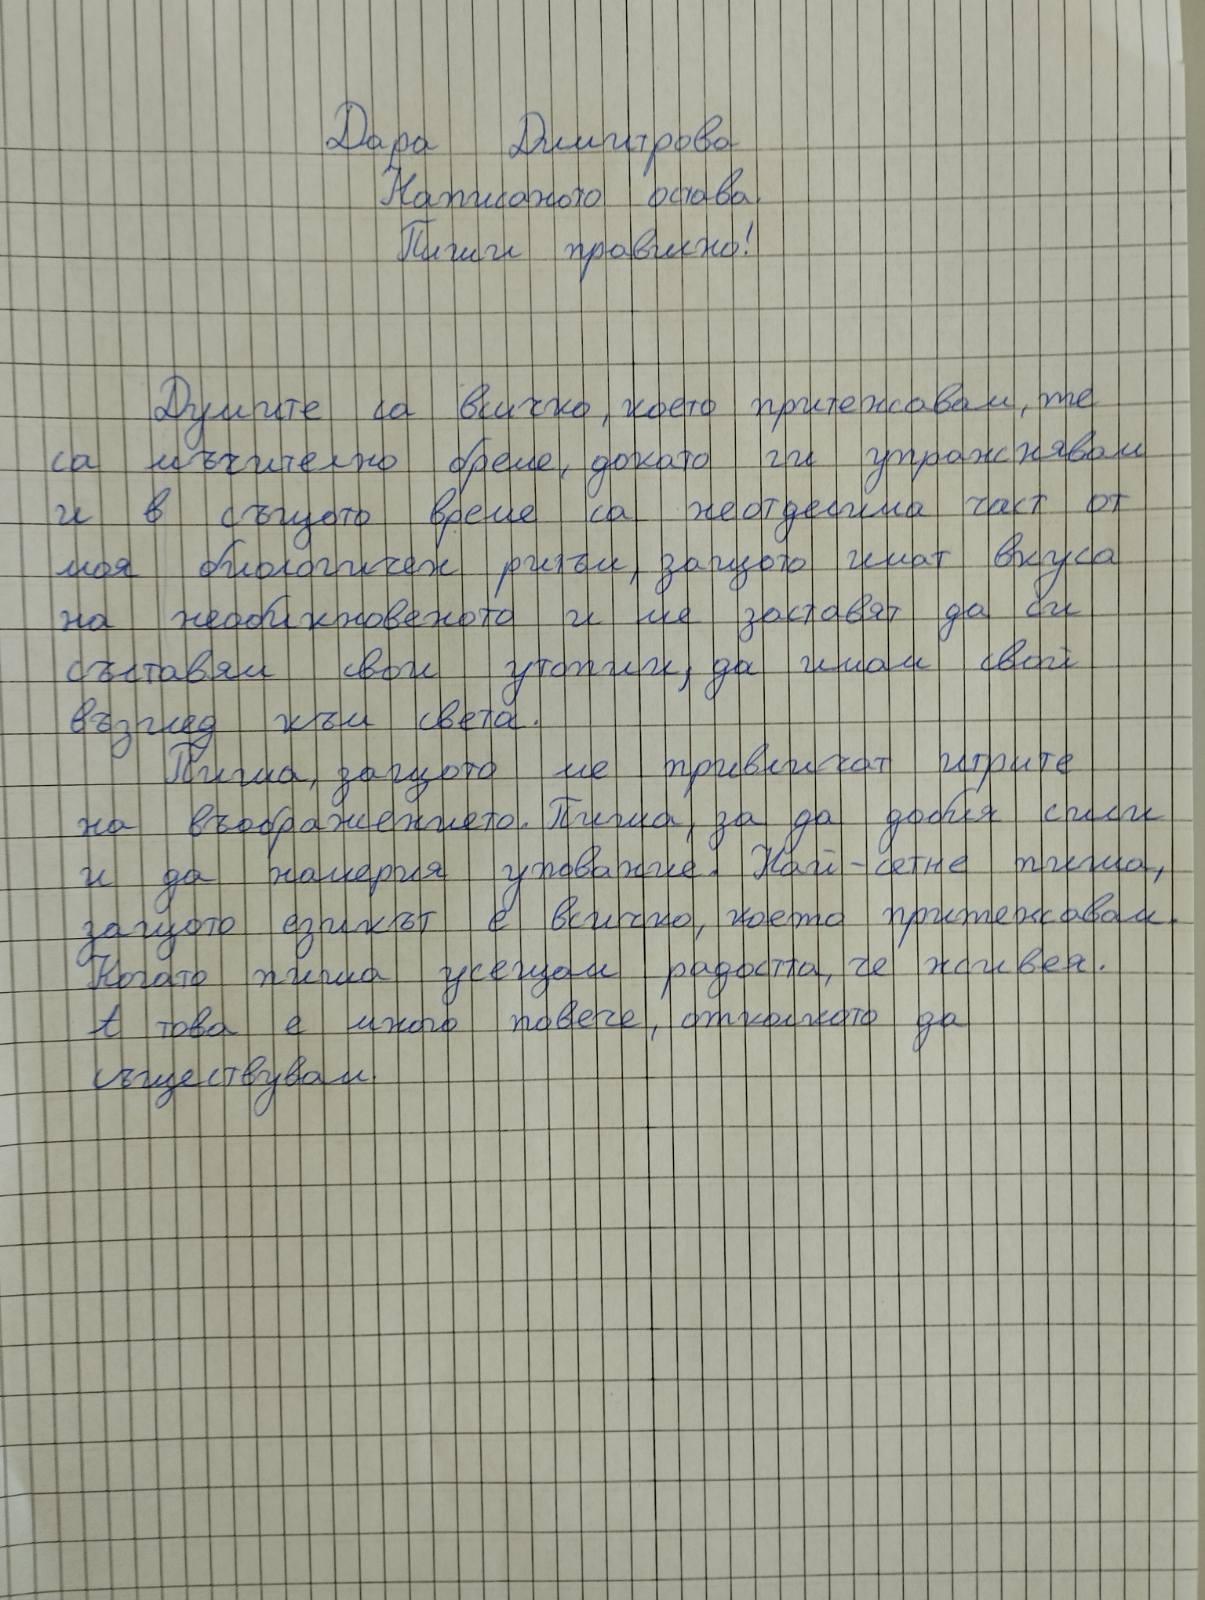 Дара Димитрова
Написаното остава.
Пиши правилно!
Думите са всичко, което притежавам, те
са мъчително бреме, докато ги упражнявам
и в същото време са неотделима част от
моя биологичен ритъм, защото имат вкуса
на необикновеното и ме заставят да си
съставям свои утопии, да имам свой
възглед към света.
Пиша, защото ме привличат игрите
на въображението. Пиша, за да добия сили
и да намеря упование. Най-сетне пиша,
защото езикът е всичко, което притежавам.
Когато пиша усещам радостта, че живея.
А това е много повече, отколкото да
съществувам.